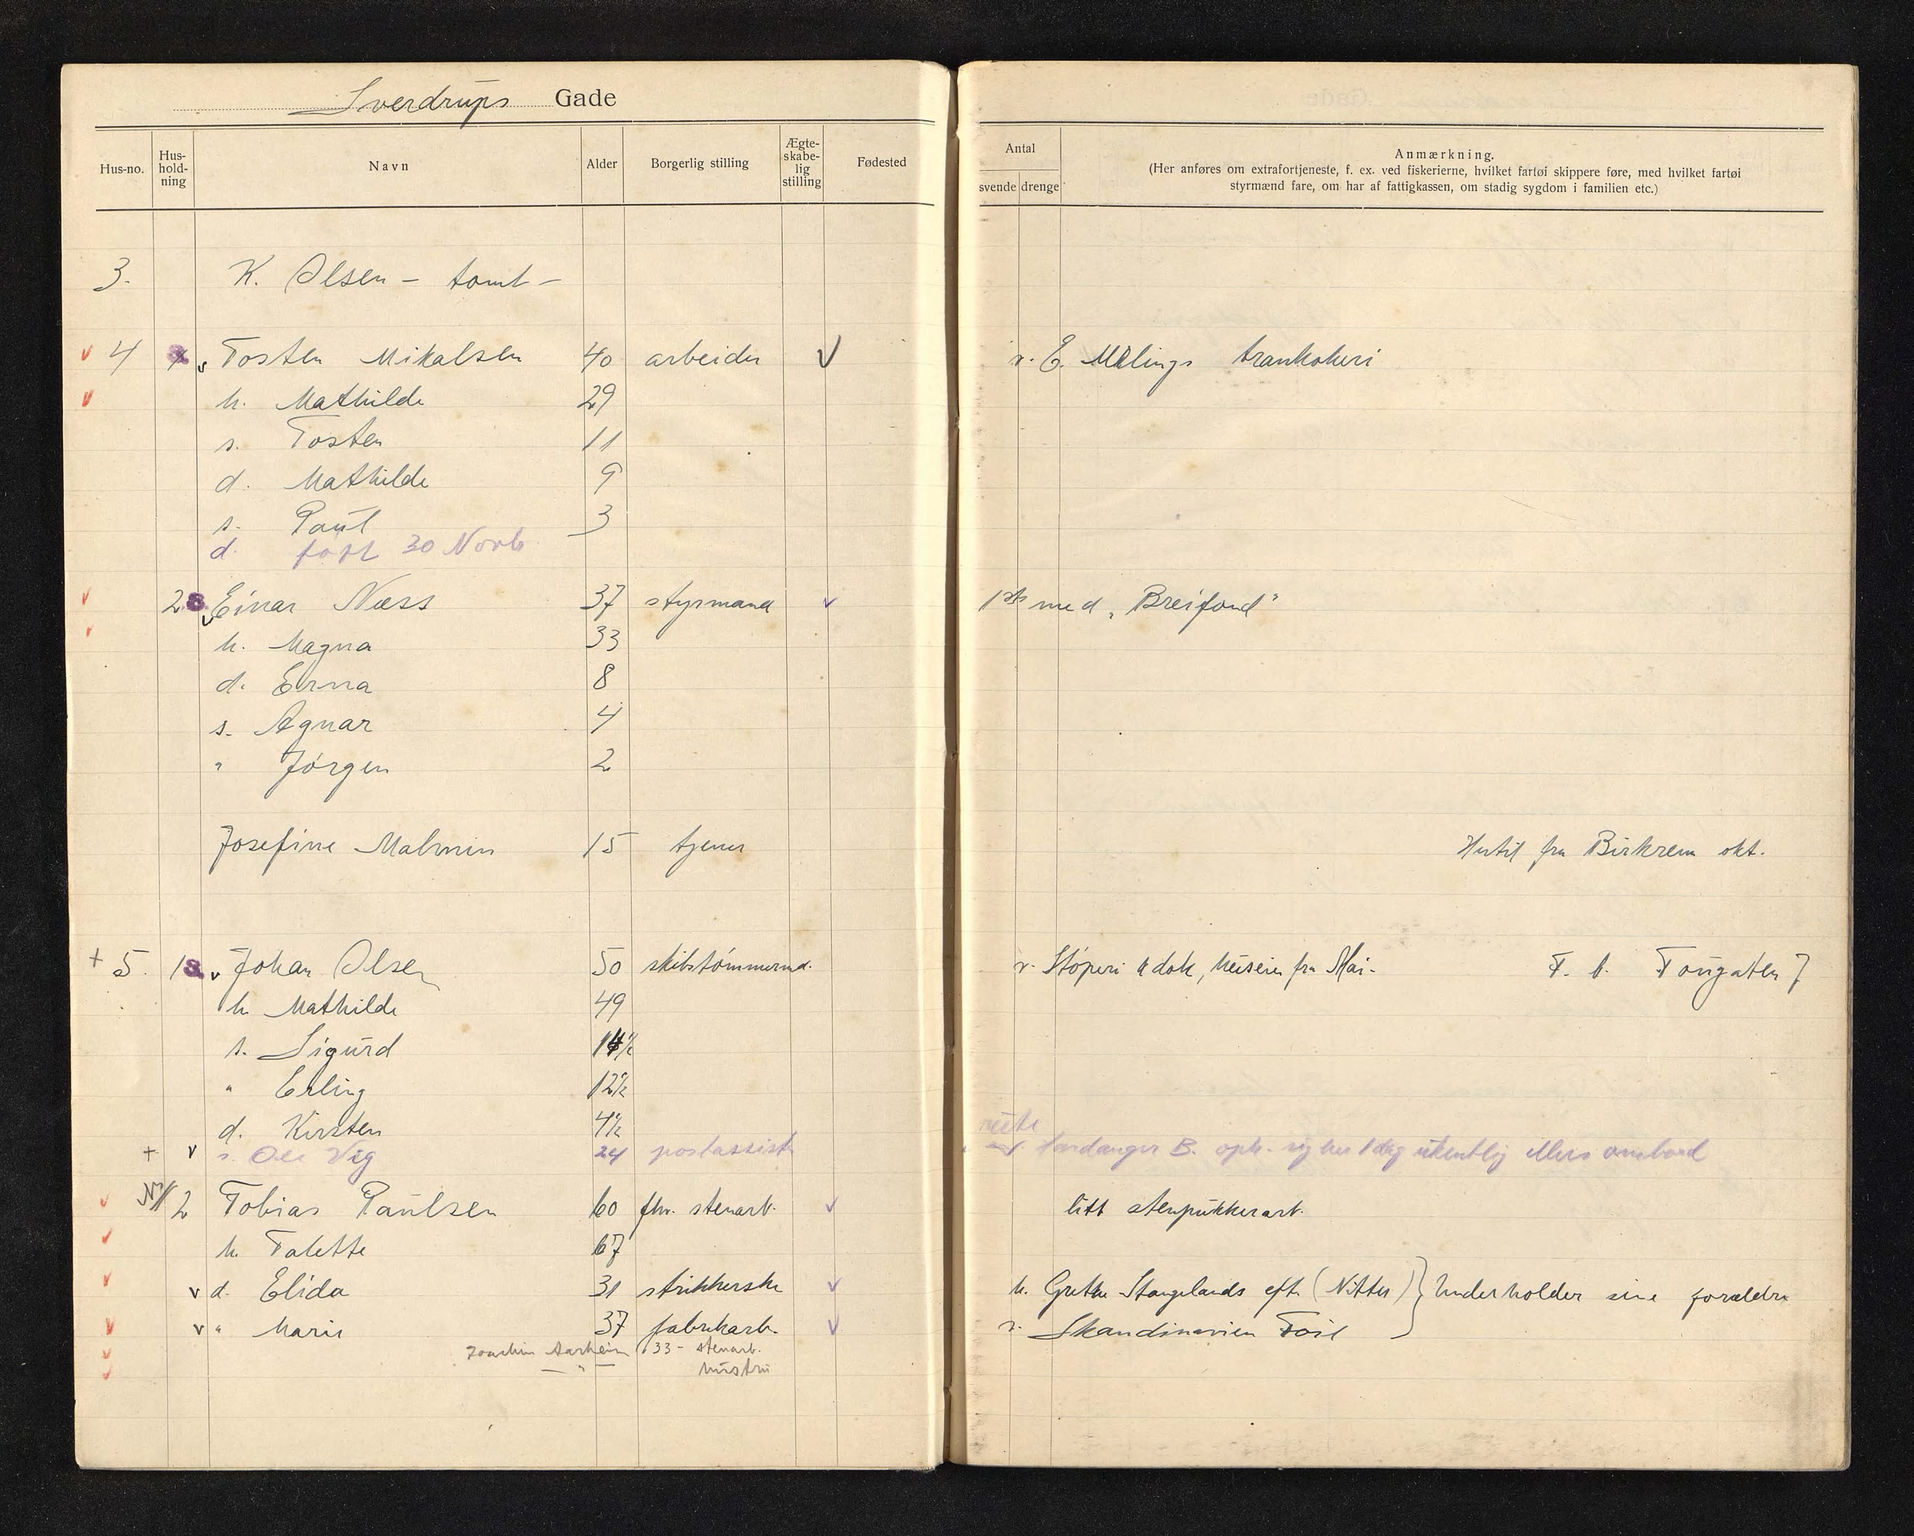 Sverdrups Gade
Hus-no. Hus-hold-ning Navn Alder Borgerlig stilling Ægte-skabe-lig stilling Fødested
Antal
svende drenge
Anmærkning.
(Her anføres om extrafortjeneste, f. ex. ved fiskerierne, hvilket fartøi skippere føre, med hvilket fartøi
styrmænd fare, om har af fattigkassen, om stadig sygdom i familien etc.)
3. K. Olsen – tomt –
v 4 v Tosten Mikalsen 40 arbeider v v. E. Mælings trankokeri
v h. Mathilde 29
s. Tosten 11
d. Mathilde 9
s. Paul 3
d. født 30 Novb.
v 2 v Einar Næss 37 styrmand v 1ste med „Breifond"
v h. Magna 33
d. Erna 8
s. Agnar 4
" Jørgen 2
Josefine Malmin 15 tjener Hertil fra Birkrem okt.
+ 5. 1 v Johan Olsen 50 skibstømmermd. v. Støperi & dok, fra Mai- F. b. Tougaten 7
h. Mathilde 49
s. Sigurd 14½
" Erling 12½
d. Kirsten 4½
+ v s. Ole Vig 24 postassist. rute
Hardanger B. oph. sig her 1 dag ukentlig ellers ombord
v 2 Tobias Paulsen 60 fhv. stenarb. v litt stenpukkerarb.
v h. Talette 67
v v d. Elida 31 strikkerske v h. Grethe Stangelands eft. (Nitter) } Underholder sine forældre
v v " Marie 37 fabrikarb. v v. Skandinavien Toil
v Joachim Aarheim 33 - stenarb.
v — " — hustru